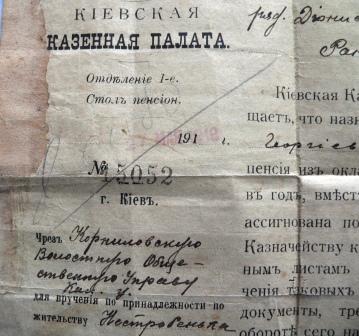 КІЕВСКАЯ
КАЗЕННАЯ ПАЛАТА.
Отдѣленіе 1-е.
Столъ пенсіон.
191 г.
№ 15052
г. Кіевъ.
Чрезъ Корниловскую
Волостную Обще-
ственную Управу
Кан. у.
для врученія по принадлежности по
жительству
ряд. Діонис
Кіевская Ка
щаетъ, что назн
Георгіев
пенсія из окла
въ годъ, вмѣст
ассигнована по
Казначейству к
нымъ листамъ
ченія таковыхъ
документы, тро
оборотѣ сего на